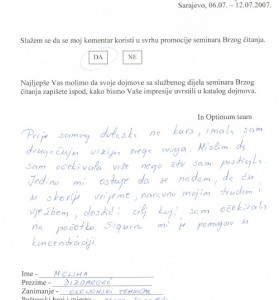 Sarajevo, 06.07. – 12.07.2007.
Slažem se da se moj komentar koristi u svrhu promocije seminara Brzog čitanja.
DA NE
Najljepše Vas molimo da svoje dojmove sa službenog dijela seminara Brzog
čitanja zapišete ispod, kako bismo Vaše impresije uvrstili u katalog dojmova.
In Optimum team
Prije samog dolaska na kurs, imala sam
drugačiju viziju nego ovoga. Mislim da
sam očekivala više nego što sam postigla.
Jedino mi ostaje da se nadam, da ću
u skorije vrijeme, naravno mojim trudom i
vježbom, dostići cilj koji sam očekivala
na početku. Sigurno mi je pomoglo u
koncentraciji.
Ime - MELIHA
Prezime - DIZDAREVIĆ
Zanimanje -